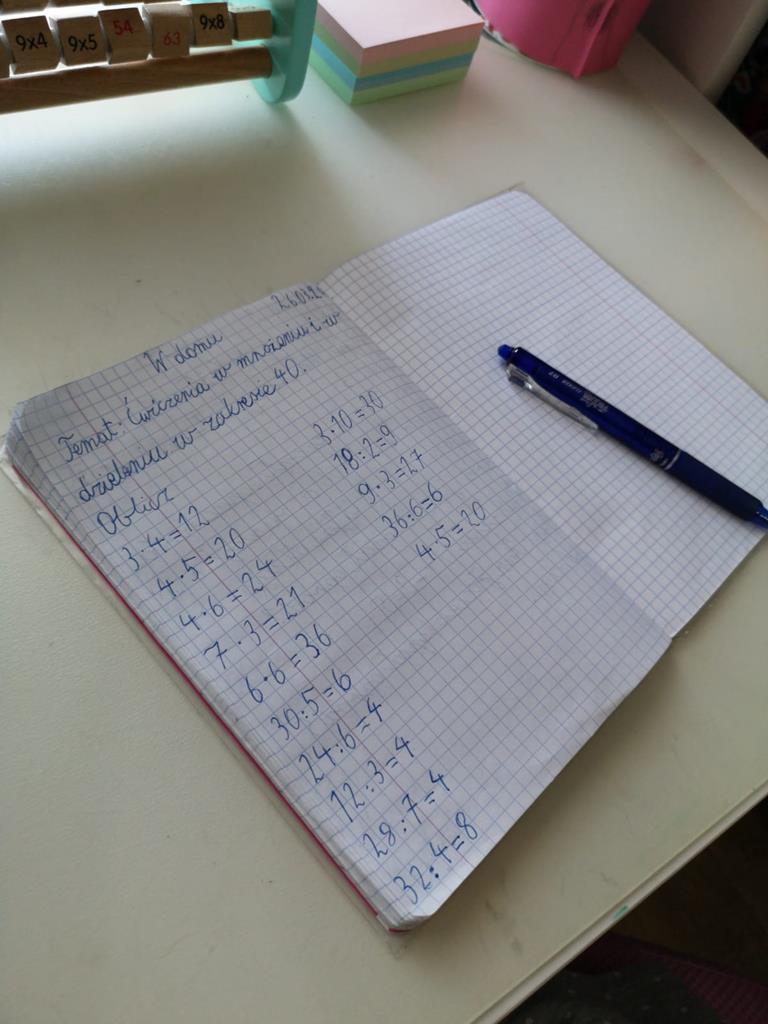 9x4 9x5 54 63 9x8
26.03.2
W domu
Temat: Ćwiczenia w mnożeniu i w
dzieleniu w zakresie 40.
Oblicz
3·4=12
4·5=20
4·6=24
7·3=21
6·6=36
30:5=6
24:6=4
12:3=4
28:7=4
32:4=8
3·10=30
18:2=9
9·3=27
36:6=6
4·5=20